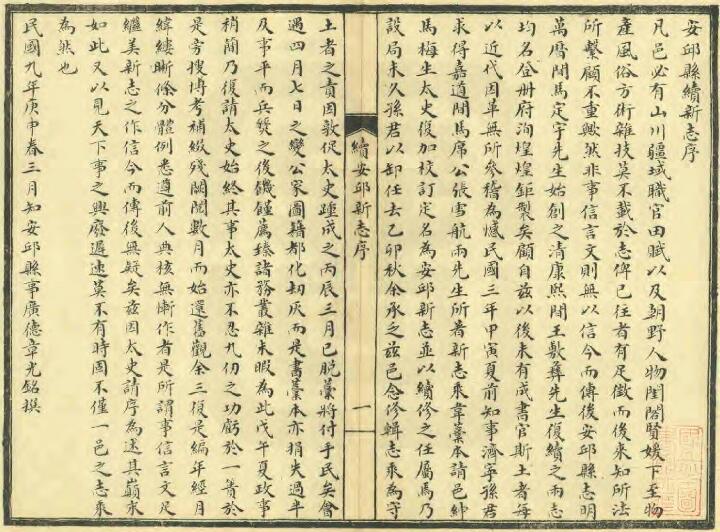 安邱縣續新志序
凡邑必有山川疆域職官田賦以及朝野人物閨閤賢媛下至物
產風俗方術雜技莫不載於志俾已往者有足徵而後來知所法
所繫顧不重歟然非事信言文則無以信今而傳後安邱縣志明
萬曆間馬定宇先生始創之清康熙間王敷彝先生復續之兩志
均名登册府洵煌煌鉅製矣顧自茲以後未有成書官斯土者每
以近代因革無所參稽為憾民國三年甲寅夏前知事濟寧孫君
求得嘉道間馬席公張雪航兩先生所著新志乘韋藁本請邑紳
馬梅生太史復加校訂定名為安邱新志並以續修之任屬馬乃
設局未久孫君以卸任去乙卯秋余承乏茲邑念修輯志乘為守
土者之責因敦促太史踵成之丙辰三月已脫藁將付手民矣會
遇四月七日之變公家圖籍都化刼灰而是書藁本亦捐失過半
及事平而兵燹之後饑饉薦臻諸務叢雜未暇為此戊午夏政事
稍簡乃復請太史始終其事太史亦不忍九仞之功虧於一簣於
是旁搜博考補綴殘闕閱數月而始還舊觀余三復是編年經月
緯縷晰條分體例悉遵前人典核無慚作者是所謂事信言文足
繼美新志之作信今而傳後無疑矣茲因太史請序為述其巔末
如此又以見天下事之興廢遲速莫不有時固不僅一邑之志乘
為然也
民國九年庚申春三月知安邱縣事廣德章光銘撰
續安邱新志序
一